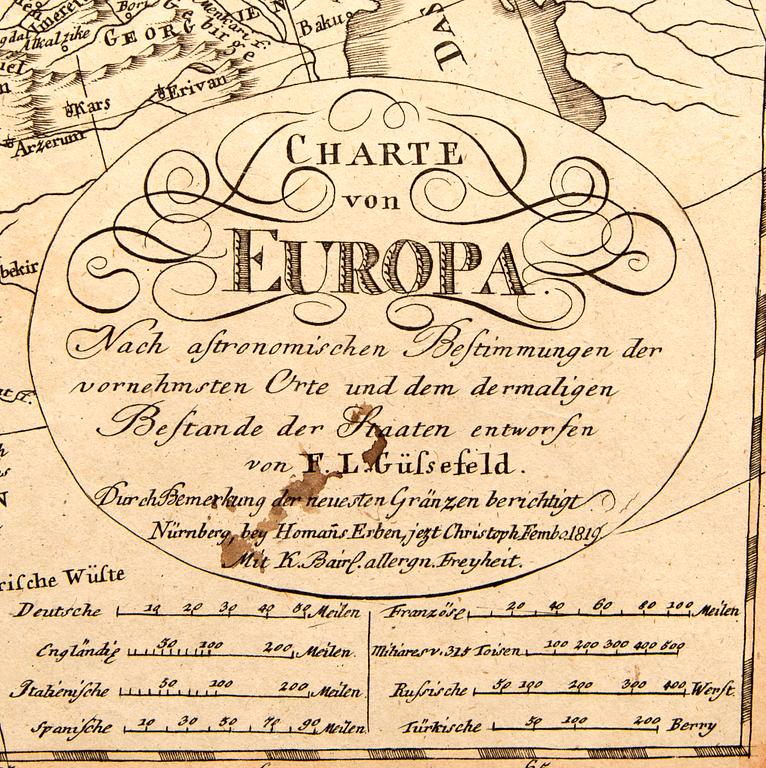 Imereti
Bori
Akalzike
GEORGIEN
Gebirge
Baku
DAS
Kars
Erivan
Arzerum
bekir
CHARTE
von
EUROPA.
Nach aſtronomiſchen Beſtimmungen der
vornehmsten Orte und dem dermaligen
Beſtande der Staaten entworfen
von F. L. Güſsefeld.
Durch Bemerkung der neuesten Gränzen berichtigt
Nürnberg, bey Homañs Erben, jezt Christoph Fembo 1819
Mit K. Bairſ. allergn. Freyheit.
riſche Wüſte
Deutsche 10 20 30 40 50 Meilen
Engländiſ 50 100 200 Meilen
Italieniſche 50 100 200 Meilen
Spaniſche 10 30 50 70 90 Meilen
Französ. 20 40 60 80 100 Meilen
Miliares v. 315 Toisen 100 200 300 400 500
Ruſsiſche 50 100 200 300 400 Werſt.
Türkiſche 50 100 200 Berry
65